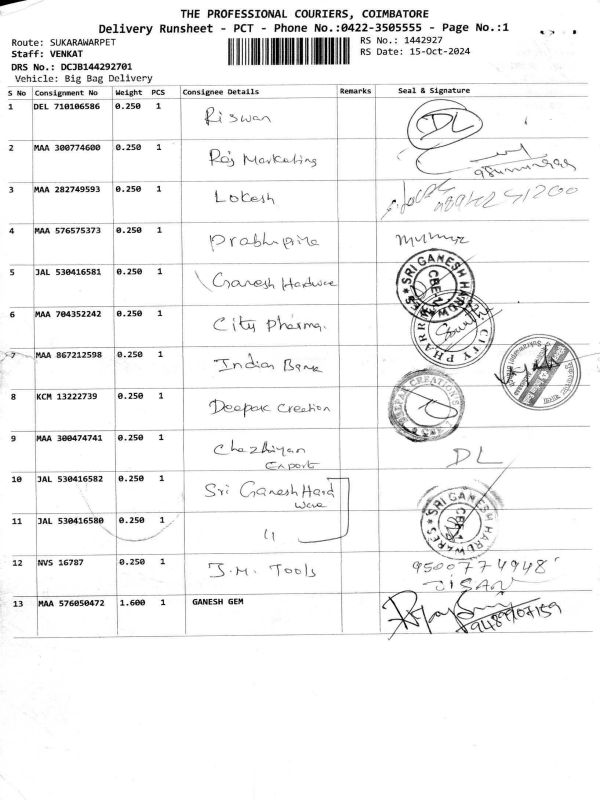 THE PROFESSIONAL COURIERS, COIMBATORE
Delivery Runsheet - PCT - Phone No.:0422-3505555 - Page No.:1
Route: SUKARAWARPET
RS No.: 1442927
Staff: VENKAT
RS Date: 15-Oct-2024
DRS No.: DCJB144292701
Vehicle: Big Bag Delivery
S No Consignment No Weight PCS Consignee Details Remarks Seal & Signature
1 DEL 710106586 0.250 1 Riswan DL
2 MAA 300774600 0.250 1 Raj Marketing
3 MAA 282749593 0.250 1 Lokesh
4 MAA 576575373 0.250 1 Prabhupriya
5 JAL 530416581 0.250 1 Ganesh Hardware SRI GANESH HARDWARES CBE-1
6 MAA 704352242 0.250 1 City Pharma. CITY PHARMA
7 MAA 867212598 0.250 1 Indian Bank
8 KCM 13222739 0.250 1 Deepak Creation DEEPAK CREATIONS
9 MAA 300474741 0.250 1 Chezhiyan Export DL
10 JAL 530416582 0.250 1 Sri Ganesh Hard Ware SRI GANESH HARDWARES CBE-1
11 JAL 530416580 0.250 1 11
12 NVS 16787 0.250 1 J.M. Tools 9500774948
JISAN
13 MAA 576050472 1.600 1 GANESH GEM 9489707159